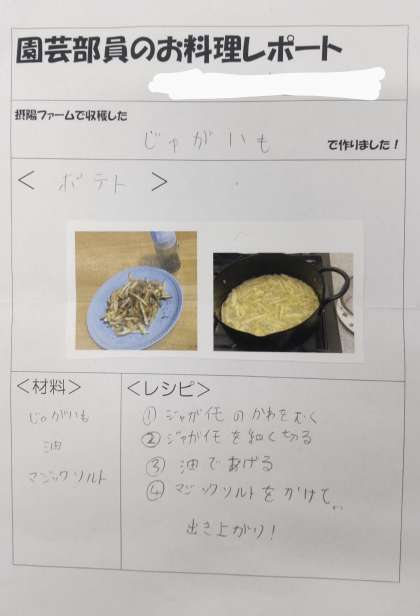 園芸部員のお料理レポート
摂陽ファームで収穫した
じゃがいも で作りました！
＜ ポテト ＞
＜材料＞
じゃがいも
油
マジックソルト
＜レシピ＞
① ジャガイモのかわをむく
② ジャガイモを細く切る
③ 油であげる
④ マジックソルトをかけて、、
出き上がり！